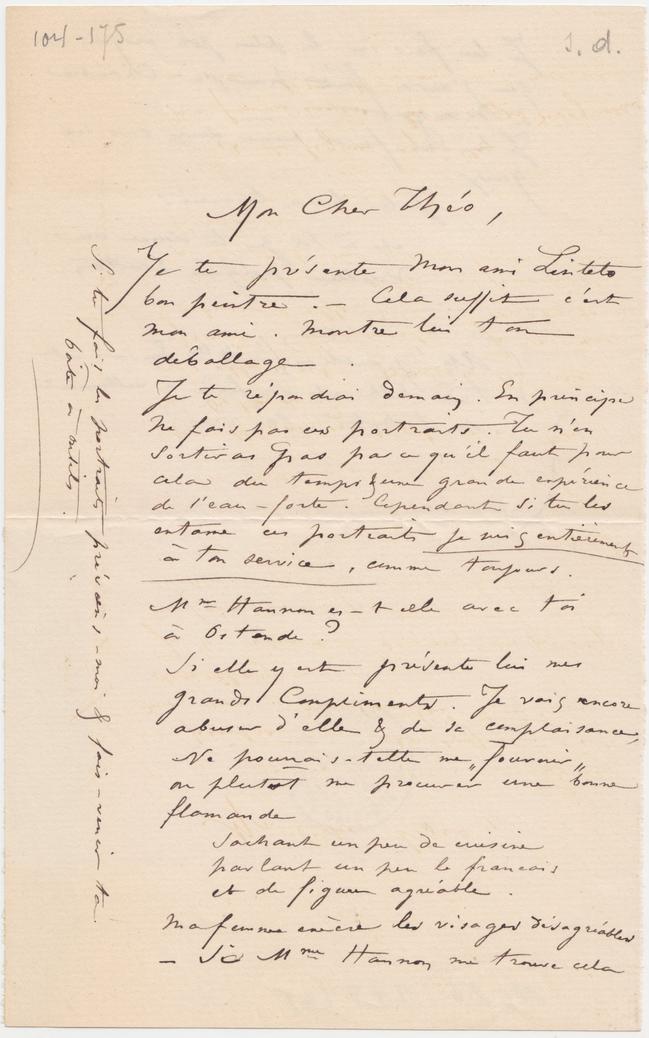 104-175
s.d.
Mon Cher Théo,
Je te présente mon ami
bon peintre. — Cela suffit c'est
mon ami. Montre lui ton
déballage.
Je te répondrai demain. En principe
ne fais pas ces portraits. Tu n'en
sortiras pas parce qu'il faut pour
cela du temps & une grande expérience
de l'eau-forte. Cependant si tu les
entame ces portraits je suis entièrement
à ton service, comme toujours.
Mme Hannon es-t elle avec toi
à Ostende ?
Si elle y est présente lui mes
grands Compliments. Je vais encore
abuser d'elle & de sa complaisance,
Ne pourrais-t elle me „fournir„
ou plutot me procurer une bonne
flamande
sachant un peu de cuisine
parlant un peu le francais
et de figure agréable.
Ma femme exècre les visages désagréables
— Si Mme Hannon me trouve cela
Si tu fais les portraits préviens-moi & fais-venir ta
boîte à outils.